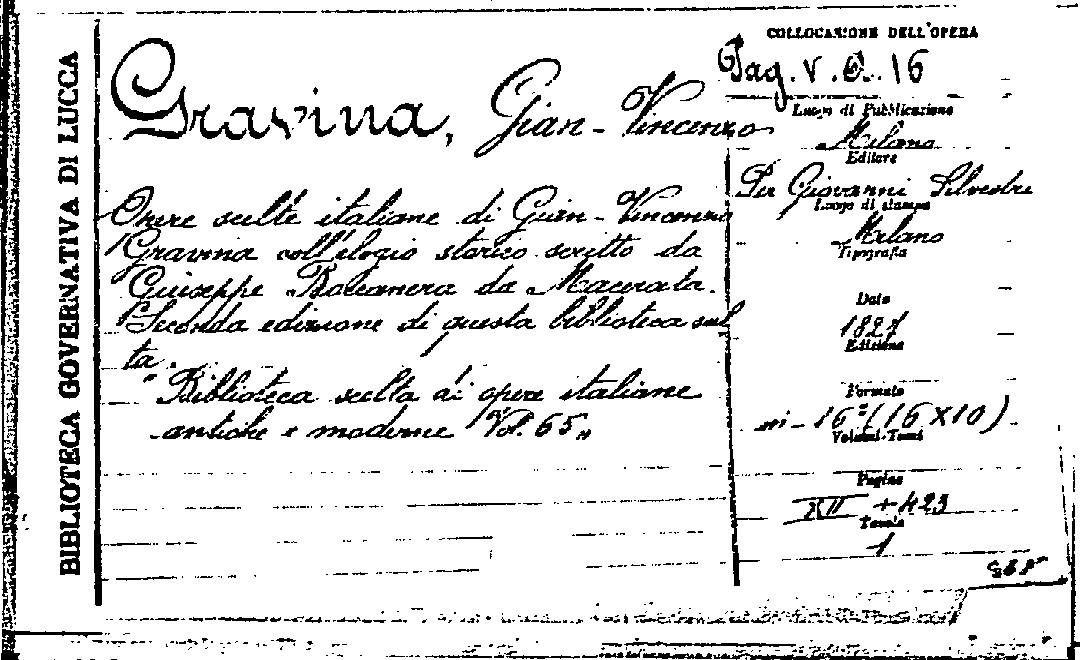 BIBLIOTECA GOVERNATIVA DI LUCCA
Gravina, Gian-Vincenzo
Opere scelte italiane di Gian-Vincenzo
Gravina coll'elogio storico scritto da
Giuseppe Boccanera da Macerata.
Seconda edizione di questa biblioteca scel
ta.
"Biblioteca scelta di opere italiane
antiche e moderne Vol. 65"
COLLOCAZIONE DELL'OPERA
Pag. V. C. 16
Luogo di Pubblicazione
Milano
Editore
Per Giovanni Silvestri
Luogo di stampa
Milano
Tipografia
Data
1827
Edizione
Formato
in-16°(16x10)
Volumi-Tomi
Pagine
XII + 423
Tavole
1